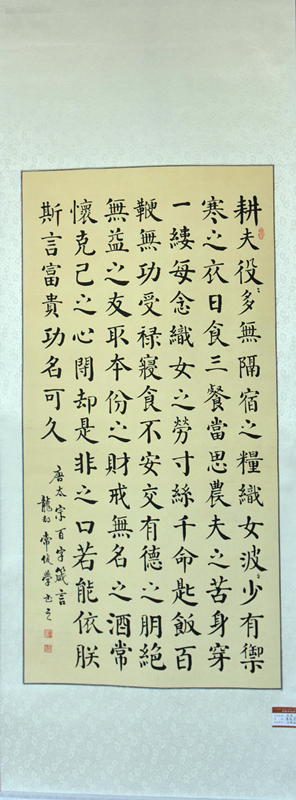 耕夫役〻多無隔宿之糧織女波〻少有禦
寒之衣日食三餐當思農夫之苦身穿
一縷每念織女之勞寸絲千命匙飯百
鞭無功受禄寢食不安交有德之朋絕
無益之友取夲份之財戒無名之酒常
懷克己之心閉却是非之口若能依朕
斯言富貴功名可久
唐太宗百字箴言
龍 常俊學書之